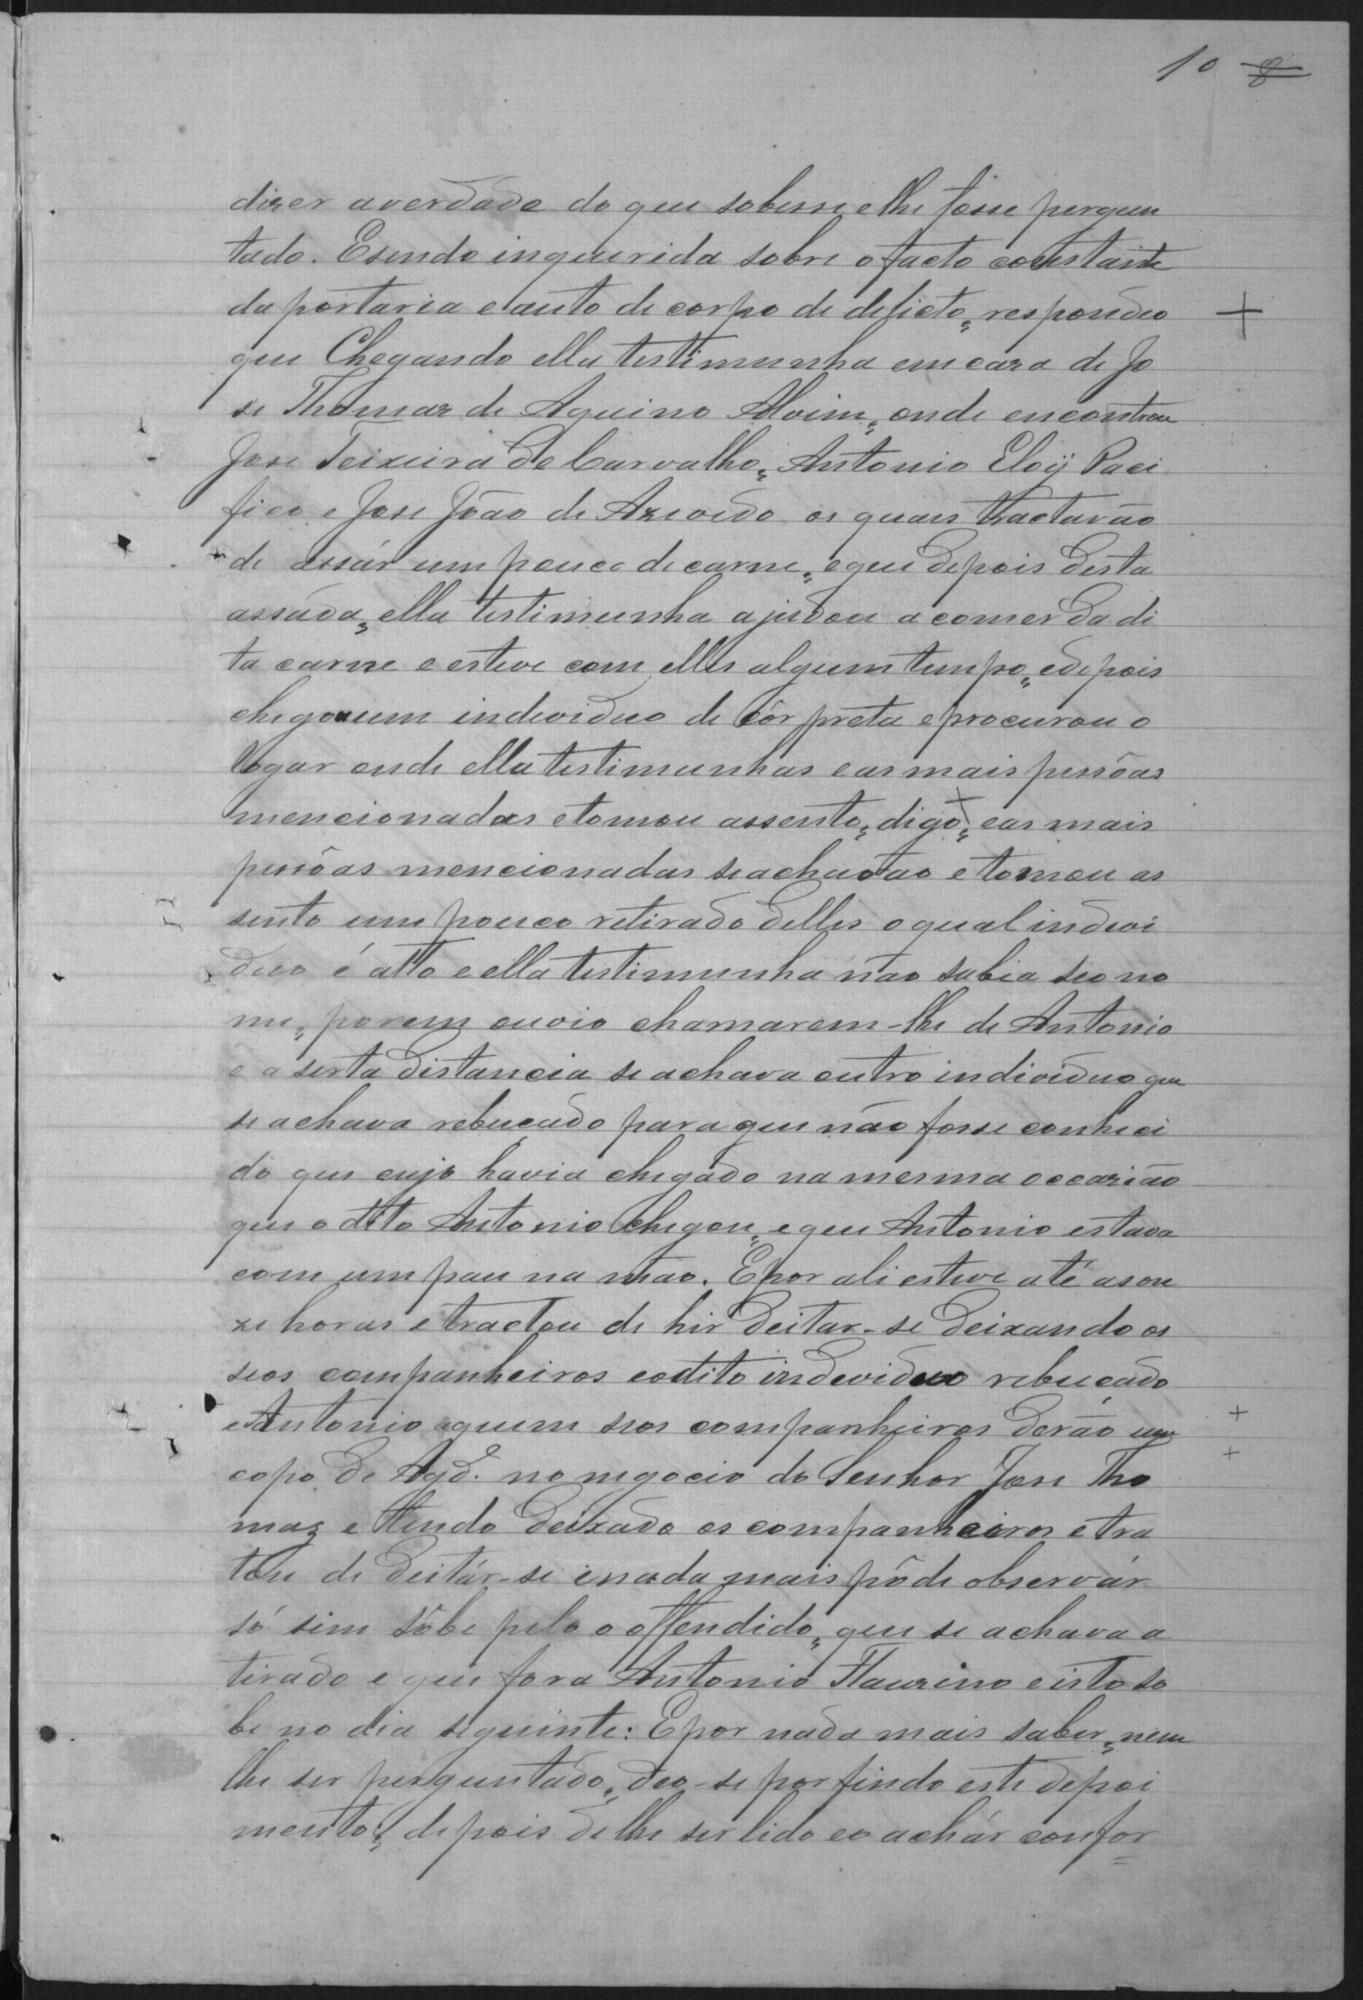 10 8
dizer averdade do que sobesse elhe fosse pergun
tado. Esendo inquerida sobre ofacto constante
da portaria eauto de corpo de delicto, respondeo
que Chegando ella testimunha em caza de Jo
se Thomaz de Aquino Alvim, onde encontrou
Jose Teixeira de Carvalho, Antonio Eloÿ Paci
fico e Jose João de Azevedo os quais tractarão
de assár um pouco de carne, eque depois desta
assáda, ella testimunha ajudou a comer da di
ta carne e esteve com elles algum tempo, edepois
chegou um individuo de côr preta eprocurou o
logar onde ella testimunhas eas mais pessôas
mencionadas etomou assento, digo, eas mais
pessôas mencionadas seachavão e tomou as
sento um pouco retirado delles oqual indevi
duo é alto e ella testimunha não sabia seo no
me, porem ouvio chamarem-lhe de Antonio
e a serta distancia se achava outro individuo que
se achava rebuçádo para que não fosse conheci
do que cujo havia chegádo na mesma occazião
que o dito Antonio chegou, eque Antonio estava
com um pau na mão. Epor ali esteve até as on
ze horas e tractou de hir deitar-se deixando os
seos companheiros eodito indeviduo rebuçádo
eAntonio aquem seos companheiros derão um
copo de Agd.e no negocio do Senhor Jose Tho
maz e tendo deixado os companheiros e tra
tou de deitár-se enada mais pôde observár
só sim sôbe pelo o offendido, que se achava a
tirado e que fora Antonio Flauzino eisto so
be no dia seguinte: Epor nada mais saber, nem
lhe ser perguntado, deo-se por findo este depoi
mento, depois delhe ser lido eo achár confor